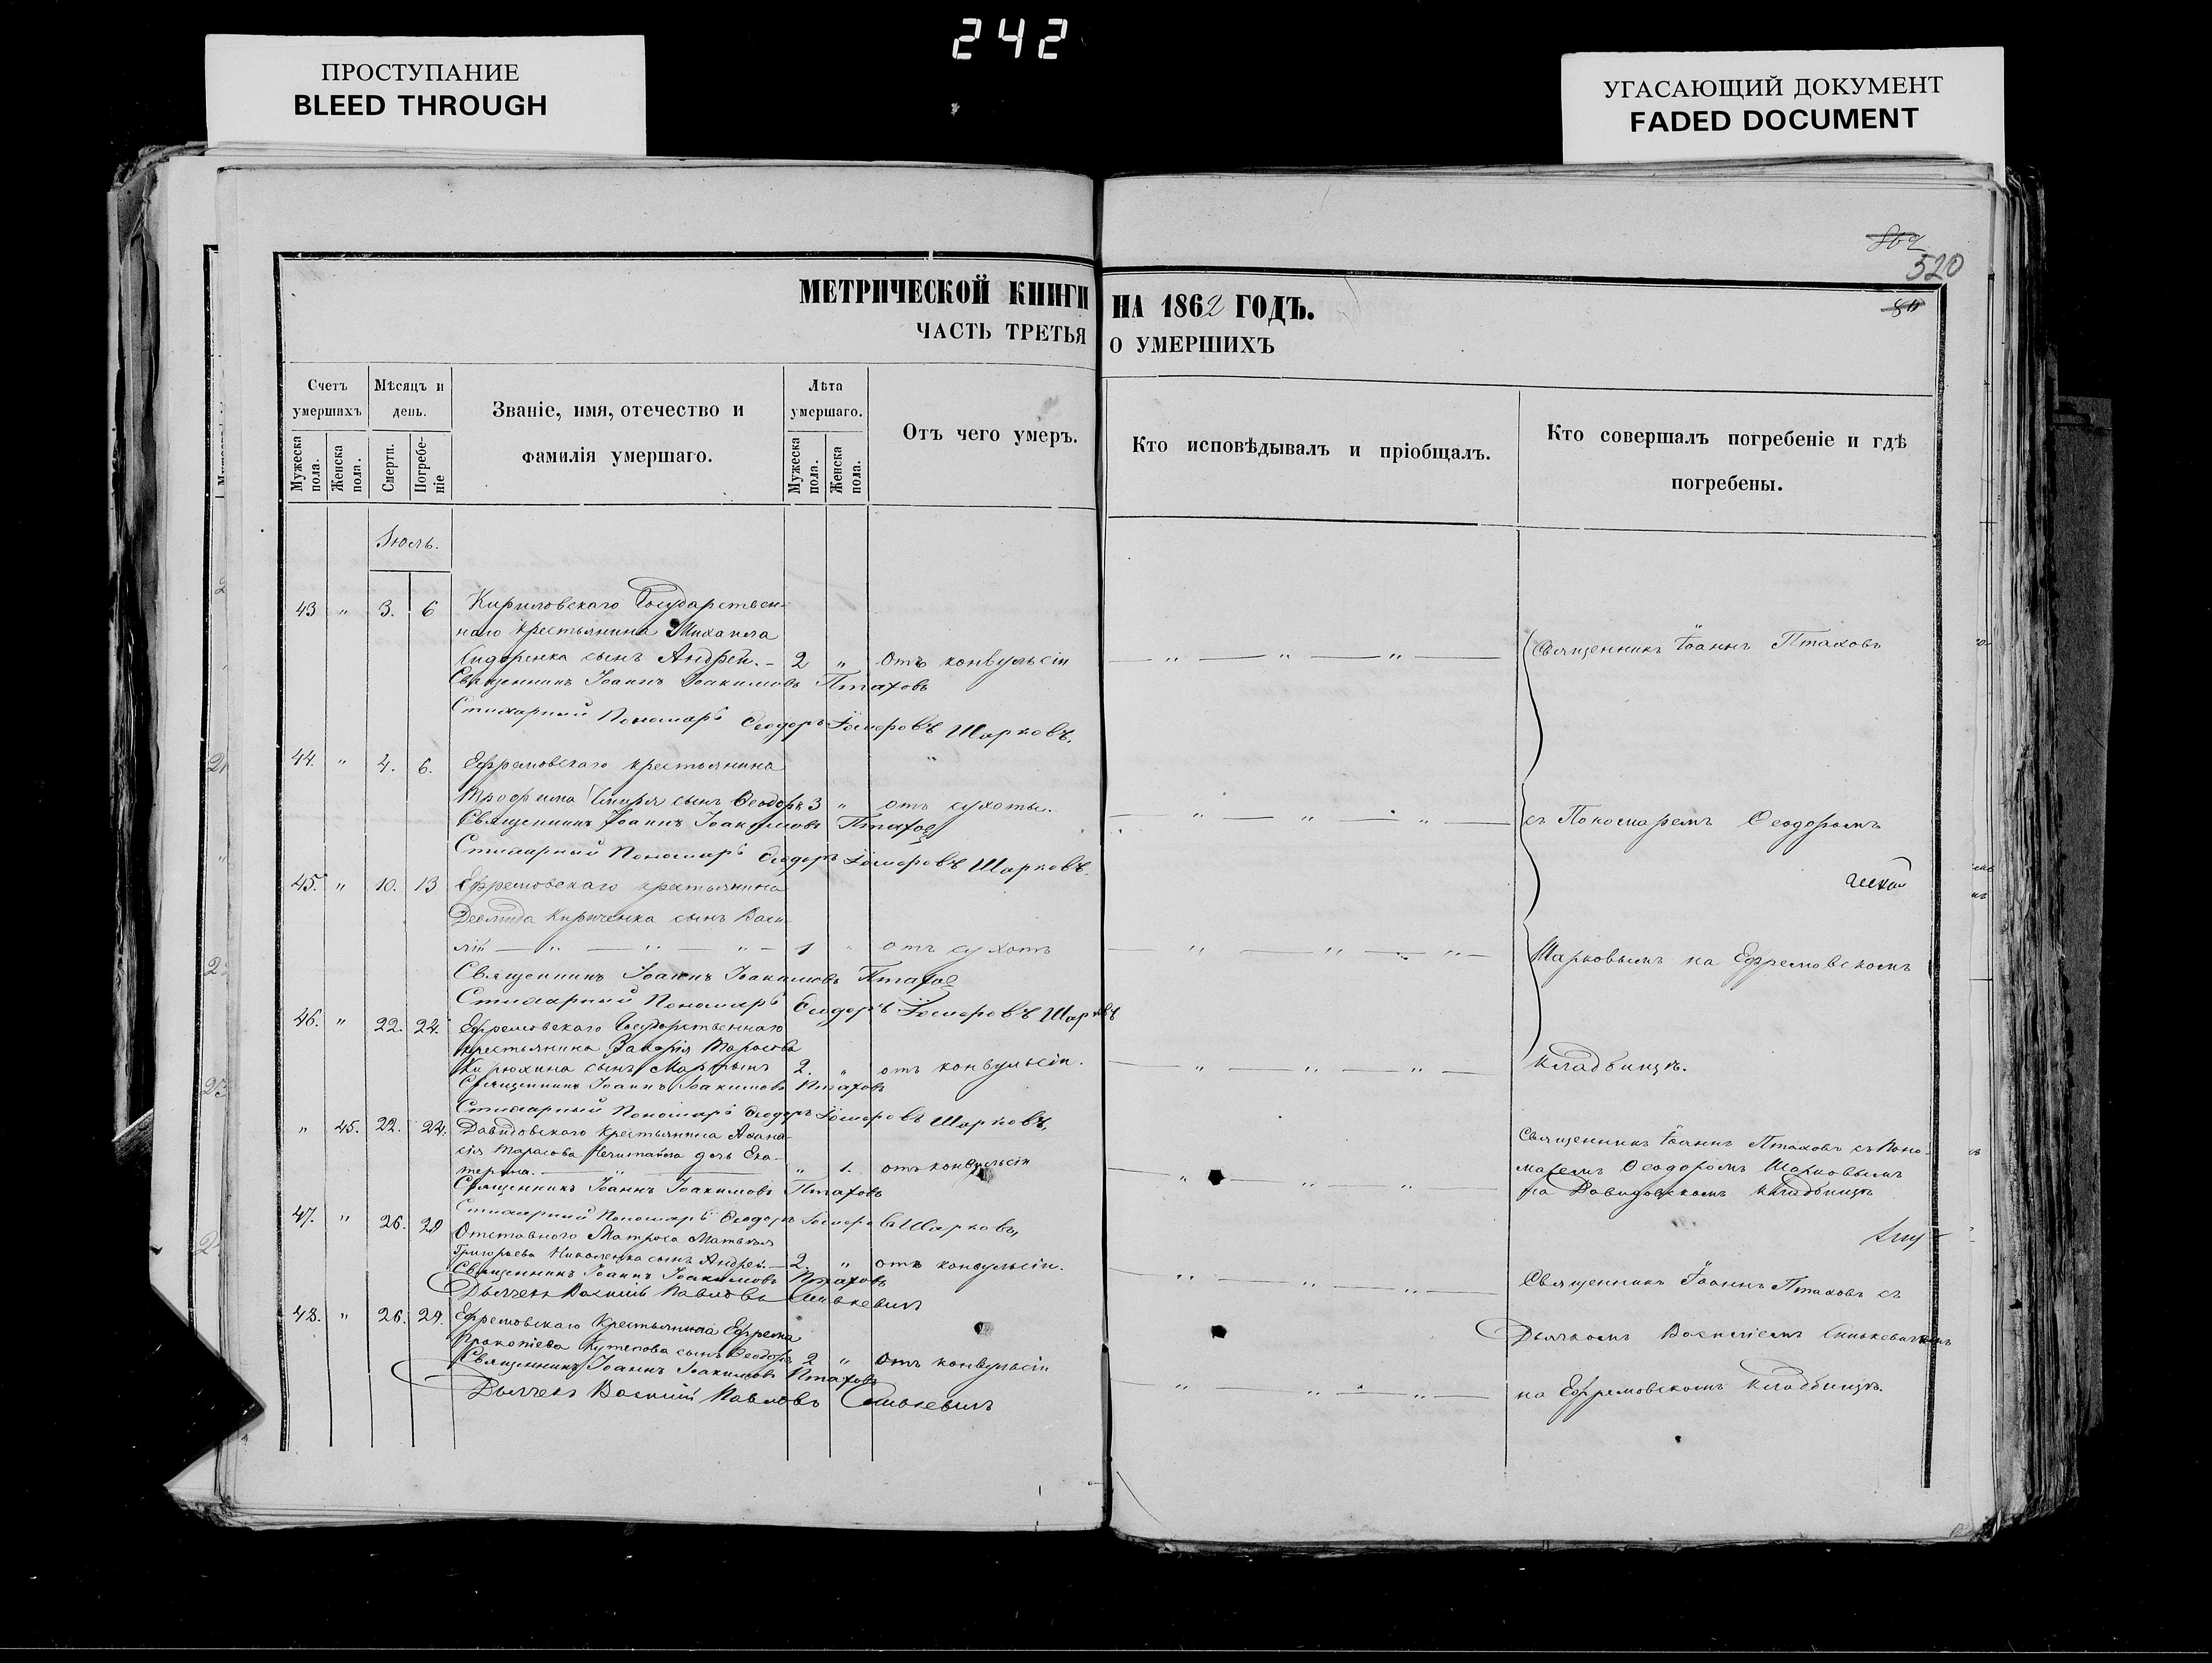 242
ПРОСТУПАНИЕ
BLEED THROUGH
УГАСАЮЩИЙ ДОКУМЕНТ
FADED DOCUMENT
520
МЕТРИЧЕСКОЙ КНИГИ НА 1862 ГОДЪ.
ЧАСТЬ ТРЕТЬЯ О УМЕРШИХЪ
Счетъ умершихъ
Мужеска пола.
Женска пола.
Мѣсяцъ и день.
Смерти.
Погребеніе
Званіе, имя, отечество и фамилія умершаго.
Лѣта умершаго.
Мужеска пола.
Женска пола.
Отъ чего умеръ.
Кто исповѣдывалъ и пріобщалъ.
Кто совершалъ погребеніе и гдѣ погребены.
Іюль.
43 " 3. 6 Кириловскаго Государствен-
наго крестьянина Михаила
Сидоренка сынъ Андрей. - 2 " отъ конвульсіи — " — " — " — Священникъ Іоаннъ Птаховъ
Священникъ Іоаннъ Іоакимовъ Птаховъ
Стихарный Пономарь Ѳеодоръ Шарковъ.
44. " 4. 6. Ефремовскаго крестьянина
Трофима сынъ Ѳеодоръ 3 " отъ сухоты. — " — " — " — съ Пономаремъ Ѳеодоромъ
Священникъ Іоаннъ Іоакимовъ Птаховъ
Стихарный Пономарь Ѳеодоръ Шарковъ.
45. " 10. 13 Ефремовскаго крестьянина
Кириченка сынъ Васи-
лій — " — " — " — 1 " отъ сухотъ — " — " — " — Шарковымъ на Ефремовскомъ
Священникъ Іоаннъ Іоакимовъ Птаховъ
Стихарный Пономарь Ѳеодоръ Шарковъ
46. " 22. 24. Ефремовскаго Государственнаго
крестьянина Захарія Тарасова
Кирюхина сынъ Мартынъ 2. " отъ конвульсіи. — " — " — " — кладбищѣ.
Священникъ Іоаннъ Іоакимовъ Птаховъ
Стихарный Пономарь Ѳеодоръ Шарковъ,
" 45. 22. 24. Давидовскаго крестьянина Аѳана-
сія Тарасова дочь Ека-
терина. — " — " 1. отъ конвульсіи — " — " — " — Священникъ Іоаннъ Птаховъ съ Поно-
маремъ Ѳеодоромъ Шарковымъ
на Давидовскомъ кладбищѣ
Священникъ Іоаннъ Іоакимовъ Птаховъ
Стихарный Пономарь Ѳеодоръ Шарковъ,
47. " 26. 29 Отставного Матроса Матвѣя
Григорьева Николенка сынъ Андрей. — 2. " отъ конвульсіи. — " — " — " — Священникъ Іоаннъ Птаховъ съ
Священникъ Іоаннъ Іоакимовъ Птаховъ
Дьячекъ Василій Павловъ Синькевичъ
48. " 26. 29. Ефремовскаго крестьянина Ефрема Дьячкомъ Василіемъ Синькевичемъ
Прокопіева Кутепова сынъ Ѳеодоръ 2 " отъ конвульсіи — " — " — " — на Ефремовскомъ кладбищѣ.
Священникъ Іоаннъ Іоакимовъ Птаховъ
Дьячекъ Василій Павловъ Синькевичъ